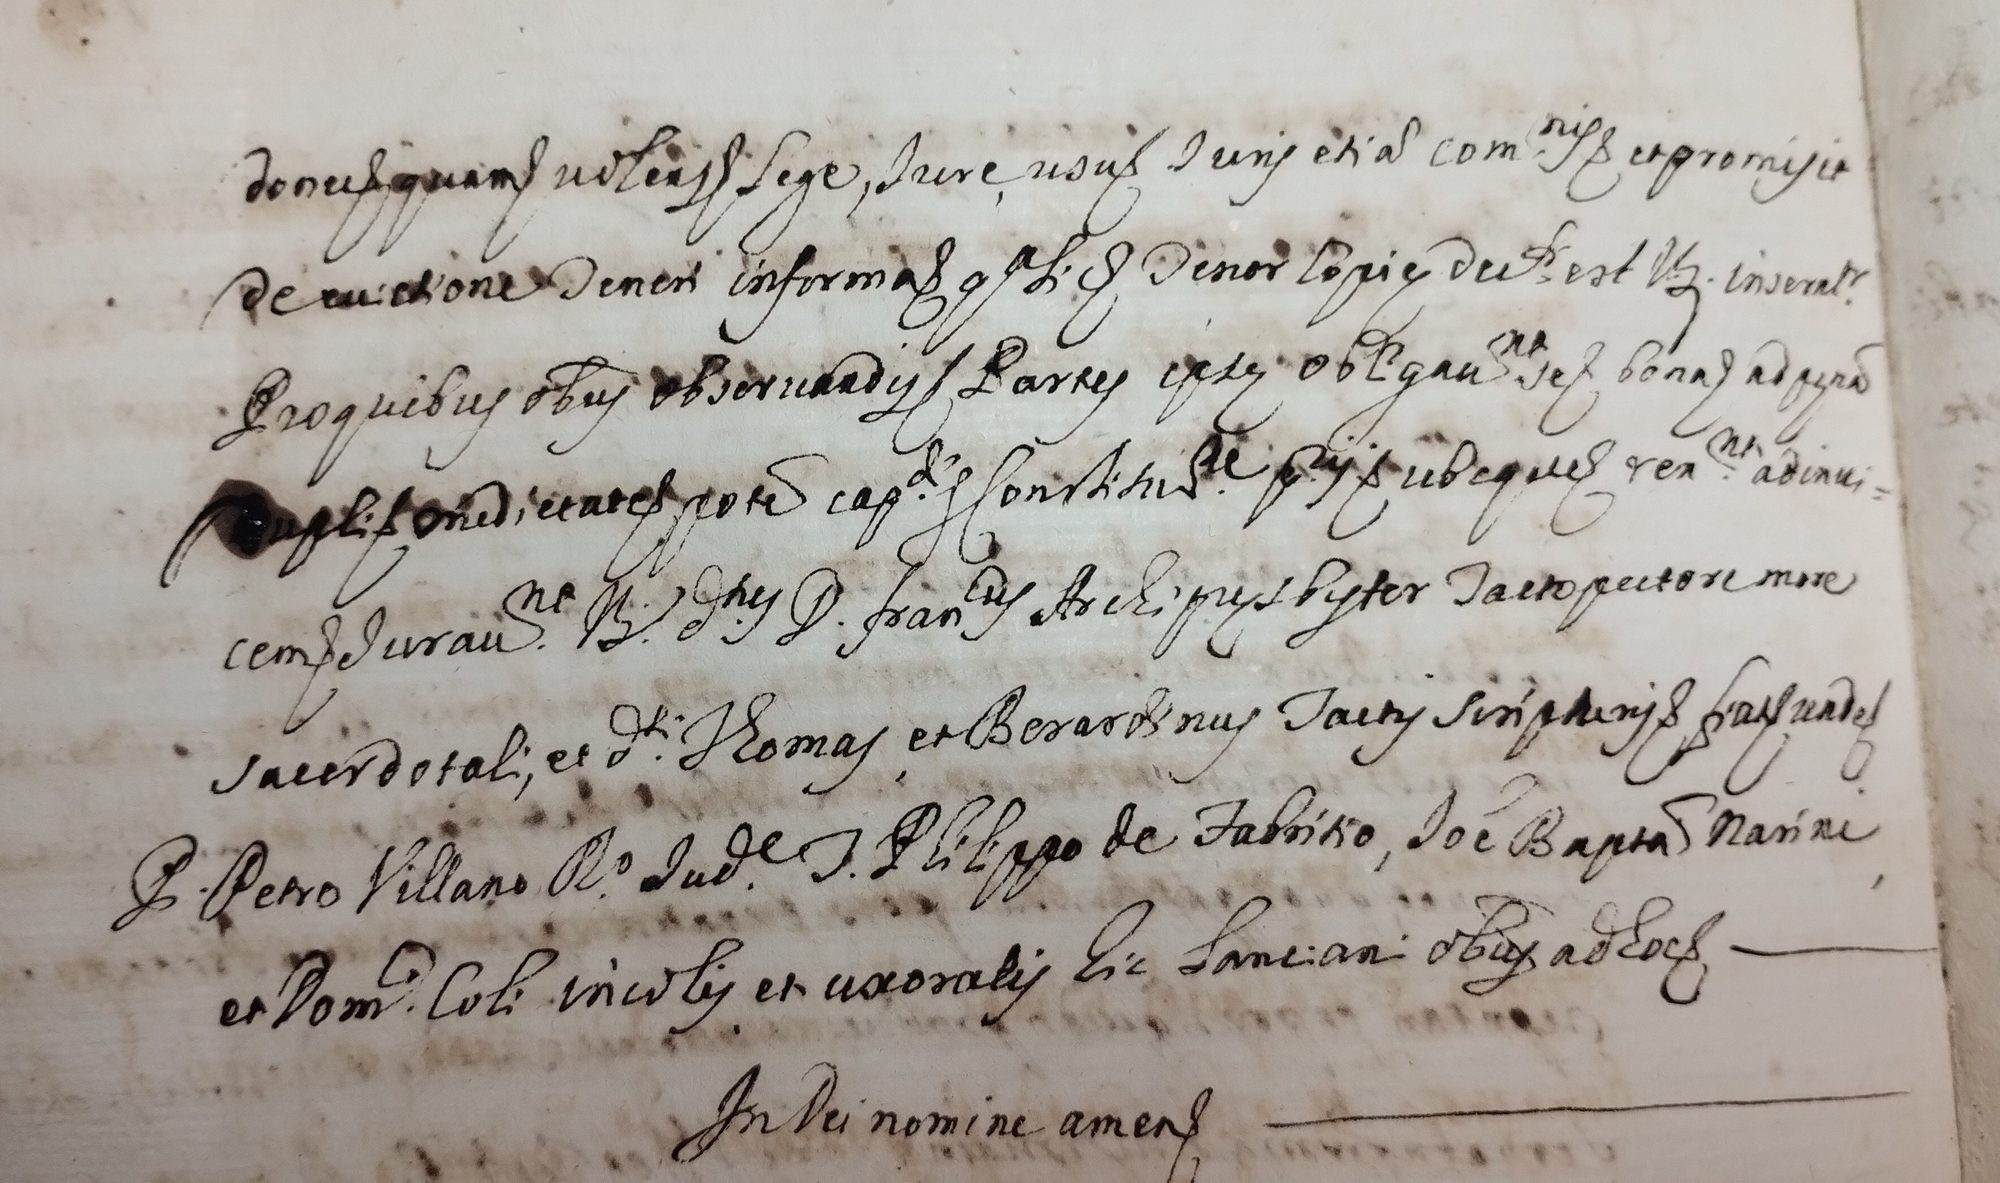 donec quam volens lege, Jure, usu Juris etiã com.nis et promisit
de evictione teneri in forma Tenor Copie est Vz. inserat.r
Pro quibus oбus observandis Partes ipse obligaũ.nt se bona ad penã
dupli medietate potẽ cap.di Constitut.e ren.nt ad invi=
cem Jurav.nt Vz. d.nus D. fran.cus Archipresbyter Tacto pectore more
sacerdotali, et d.ti Thomas, et Berardinus Tactis scripturis unde
P. Petro Villano R.o Jud.e T. Philippo de Fabritio, Joẽ Baptã Narini,
et Dom.co Coli incolis et uxoratis hic Lanciani oбus ad hoc
In Dei nomine amen